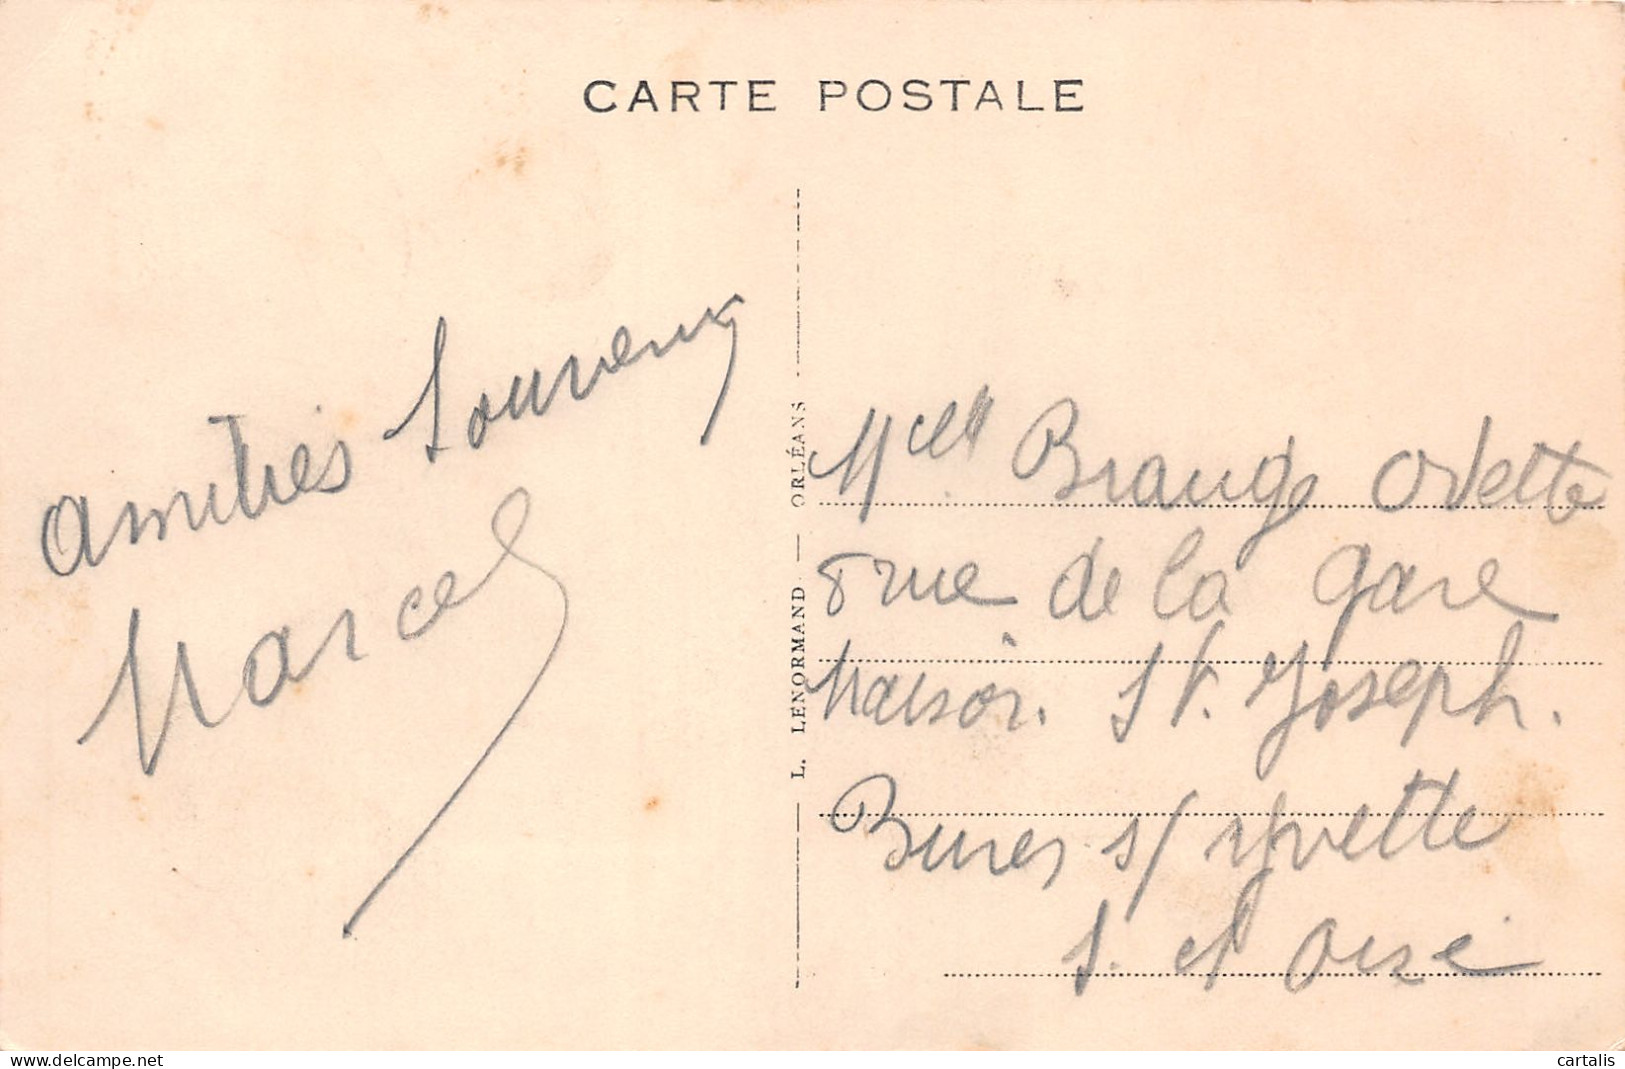 CARTE POSTALE
amitiés Souvenirs
Marcel
L. LENORMAND — ORLÉANS
Melle Odette
8 rue de la gare
Maison. St. Joseph.
Bures s/ Yvette
S. et Oise
www.delcampe.net
cartalis